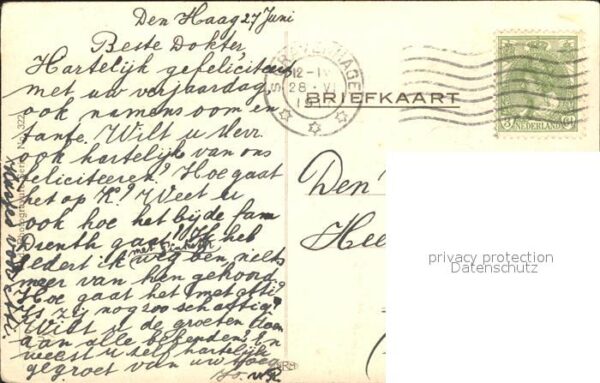 Den Haag 27 Juni
Beste Dokter,
Hartelijk gefeliciteerd
met uw verjaardag,
ook namens oom en
tante. Wilt u Mevr.
ook hartelijk van ons
feliciteeren? Hoe gaat
het op K? Weet u
ook hoe het bij de fam
Drenth gaat? Ik heb
sedert ik met Pinkster weg ben niets
meer van hen gehoord.
Hoe gaat het met
Is zij nog zoo schattig?
Wilt u de groeten doen
aan alle bekenden? En
weest u zelf hartelijk
gegroet van uw
Jo. v R
voor
'S GRAVENHAGE
12-1
28 VI
1
BRIEFKAART
NEDERLAND
Den
Hee
privacy protection
Datenschutz